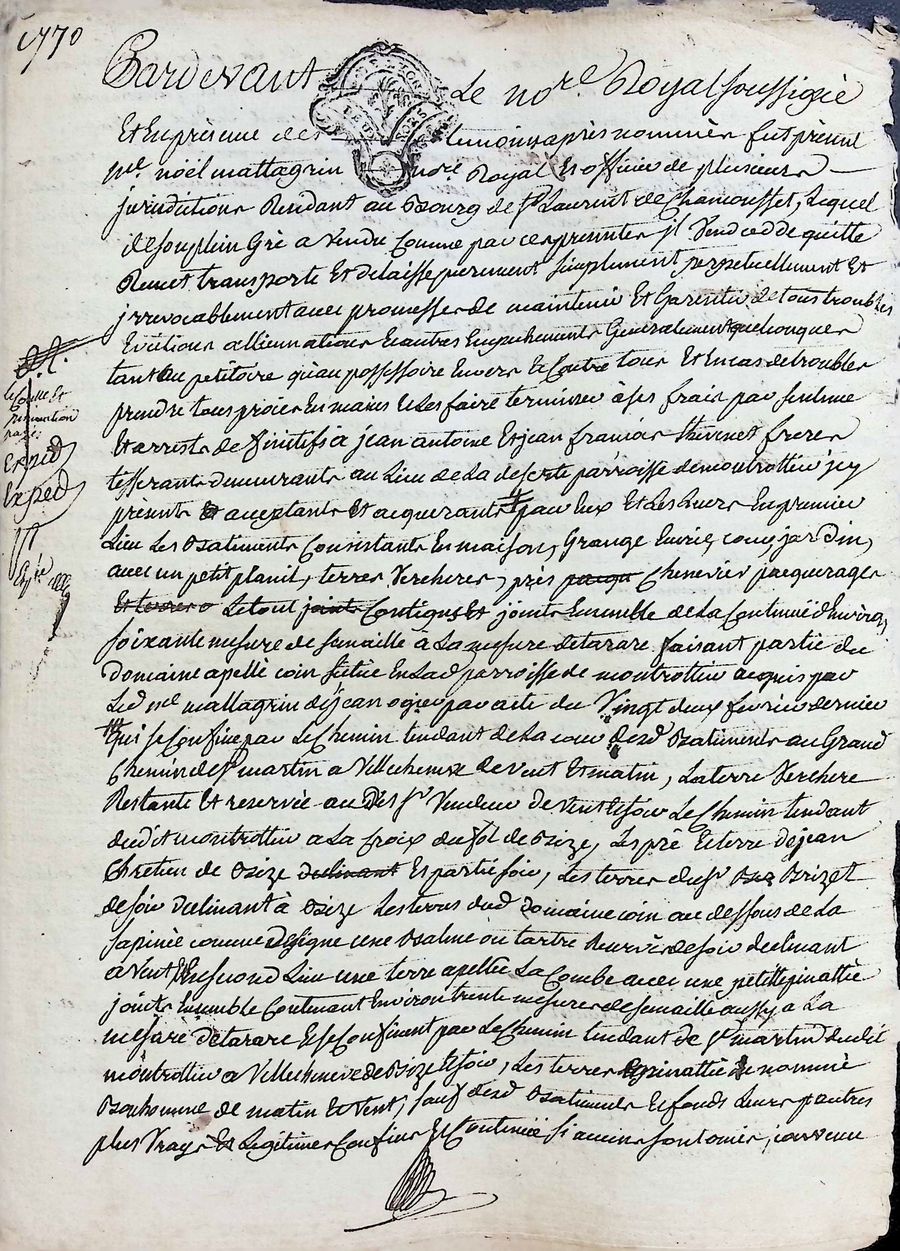 1770
Pardevant Le no.re Royal soussigné
Et En présence des temoins après nommés fut présent
m.e noël mattagrin no.re Royal Et officier de plusieurs
jurisdictions Residant au Bourg de S.t Laurent de Chamousset, Lequel
de son plein Gré a Vendu comme par ces presentes il Vend cedde quitte
Remet transporte Et delaisse purement simplement perpetuellement Et
jrrevocablement avec promesse de maintenir Et Garentir de tous troubles
Evictions alliennations Et autres Empechements Generalement quelconques
tant au petitoire qu'au possessoire Envers Et Contre tous Et En cas de troubles
prendre tous procès En mains Et Les faire terminer à ses frais par sentence
Et arrests definitifs à jean antoine Et jean françois thevenet freres
tisserants demeurants au Lieu de La deserte parroisse de montrottier jcy
présents Et acceptants Et acquerants pour Eux Et Les Leurs En premier
Lieu Les Batiments Consistants En maison, Grange Ecurie, cour, jardin,
avec un petit planit, terres Vercheres, près Chenevier paquerages
Et terres Le tout joints Contigus Et joints Ensemble de La Continuë d'Environ
soixante mesure de semaille à La mesure de tarare faisant partie du
Domaine apellé coin scitué En Lad. parroisse de montrottier acquis par
Led. m.e mattagrin de jean ogier par acte du Vingt deux fevrier dernier
qui se Confine par Le Chemin tendant de La cour desd. Batiments au Grand
Chemin de S.t martin a Villecheneve de Vent Et matin, La terre Verchere
Restante Et reservée au dit S.r Vendeur de Vent Et soir Le Chemin tendant
dudit montrottier a La Croix du sol de Bize, Les pré Et terre de jean
Chretien de Bize declinant Et partie soir, Les terres du S.r Brizet
de soir declinant à Bize Les terres dud. Domaine coin au dessous de La
sapinée comme designe une Balme ou tartre Reservée de soir declinant
a Vent Et En second Lieu une terre apellée La Combe avec une petitte pinattée
joints Ensemble Contenant Environ trente mesures de semaille aussy a La
mesure de tarare Et se Confinent par Le Chemin tendant de S.t martin dudit
montrottier a Villecheneve de Bize Et soir, Les terres Et pinattée de nommé
Bonhomme de matin Et Vent, sauf desd. Batiments Et fonds Leurs pautres
plus Vrays Et Legitimes Confins Et Continuë si aucuns sont omis, convenu
Exped
Exped